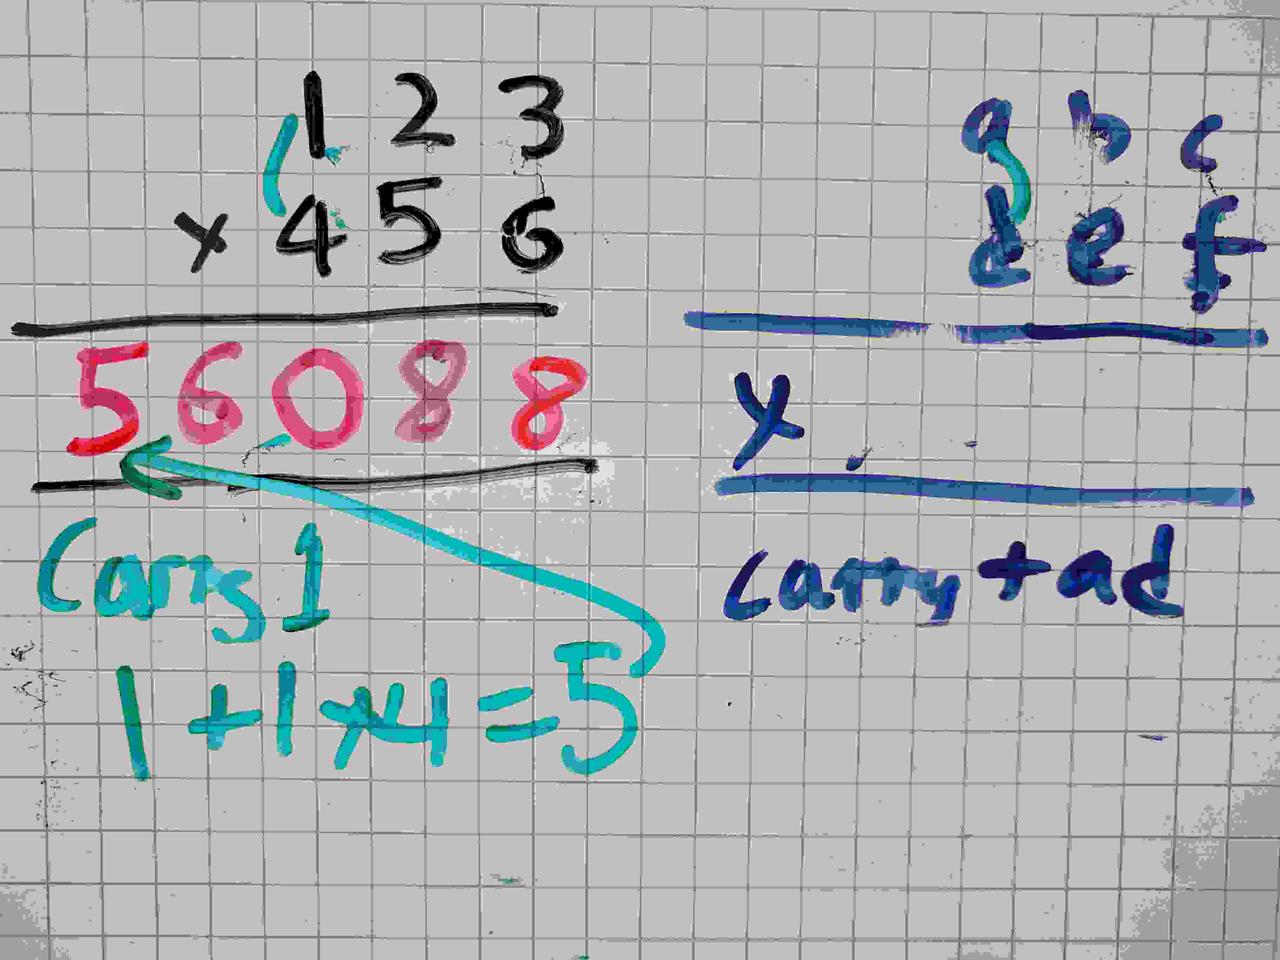 1 2 3
× 4 5 6
5 6 0 8 8
Carry 1
1 + 1 × 4 = 5
a b c
d e f
y
carry + ad